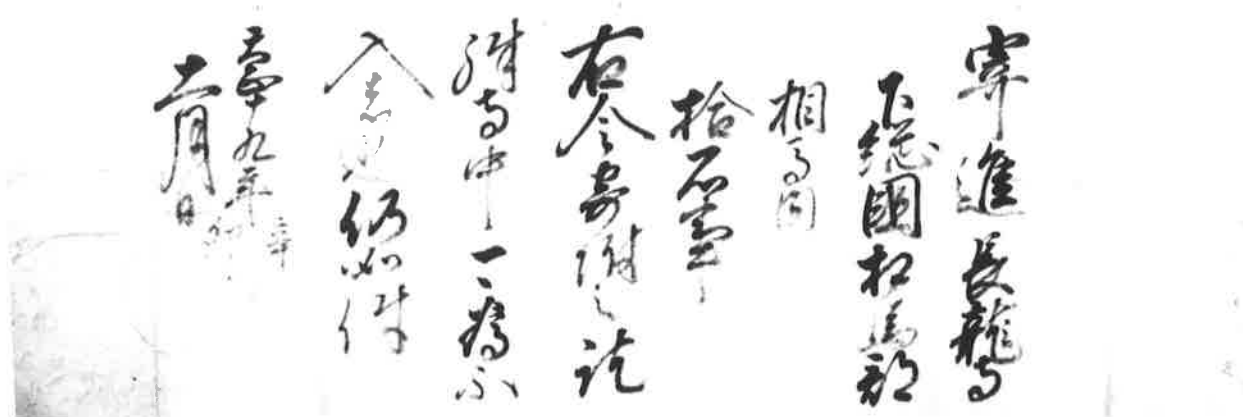 寄進長龍寺
下総國相馬郡
相馬内
拾石事
右令寄附之訖
殊寺中一〻為不
入 仍如件
天正十九年辛卯
十一月日